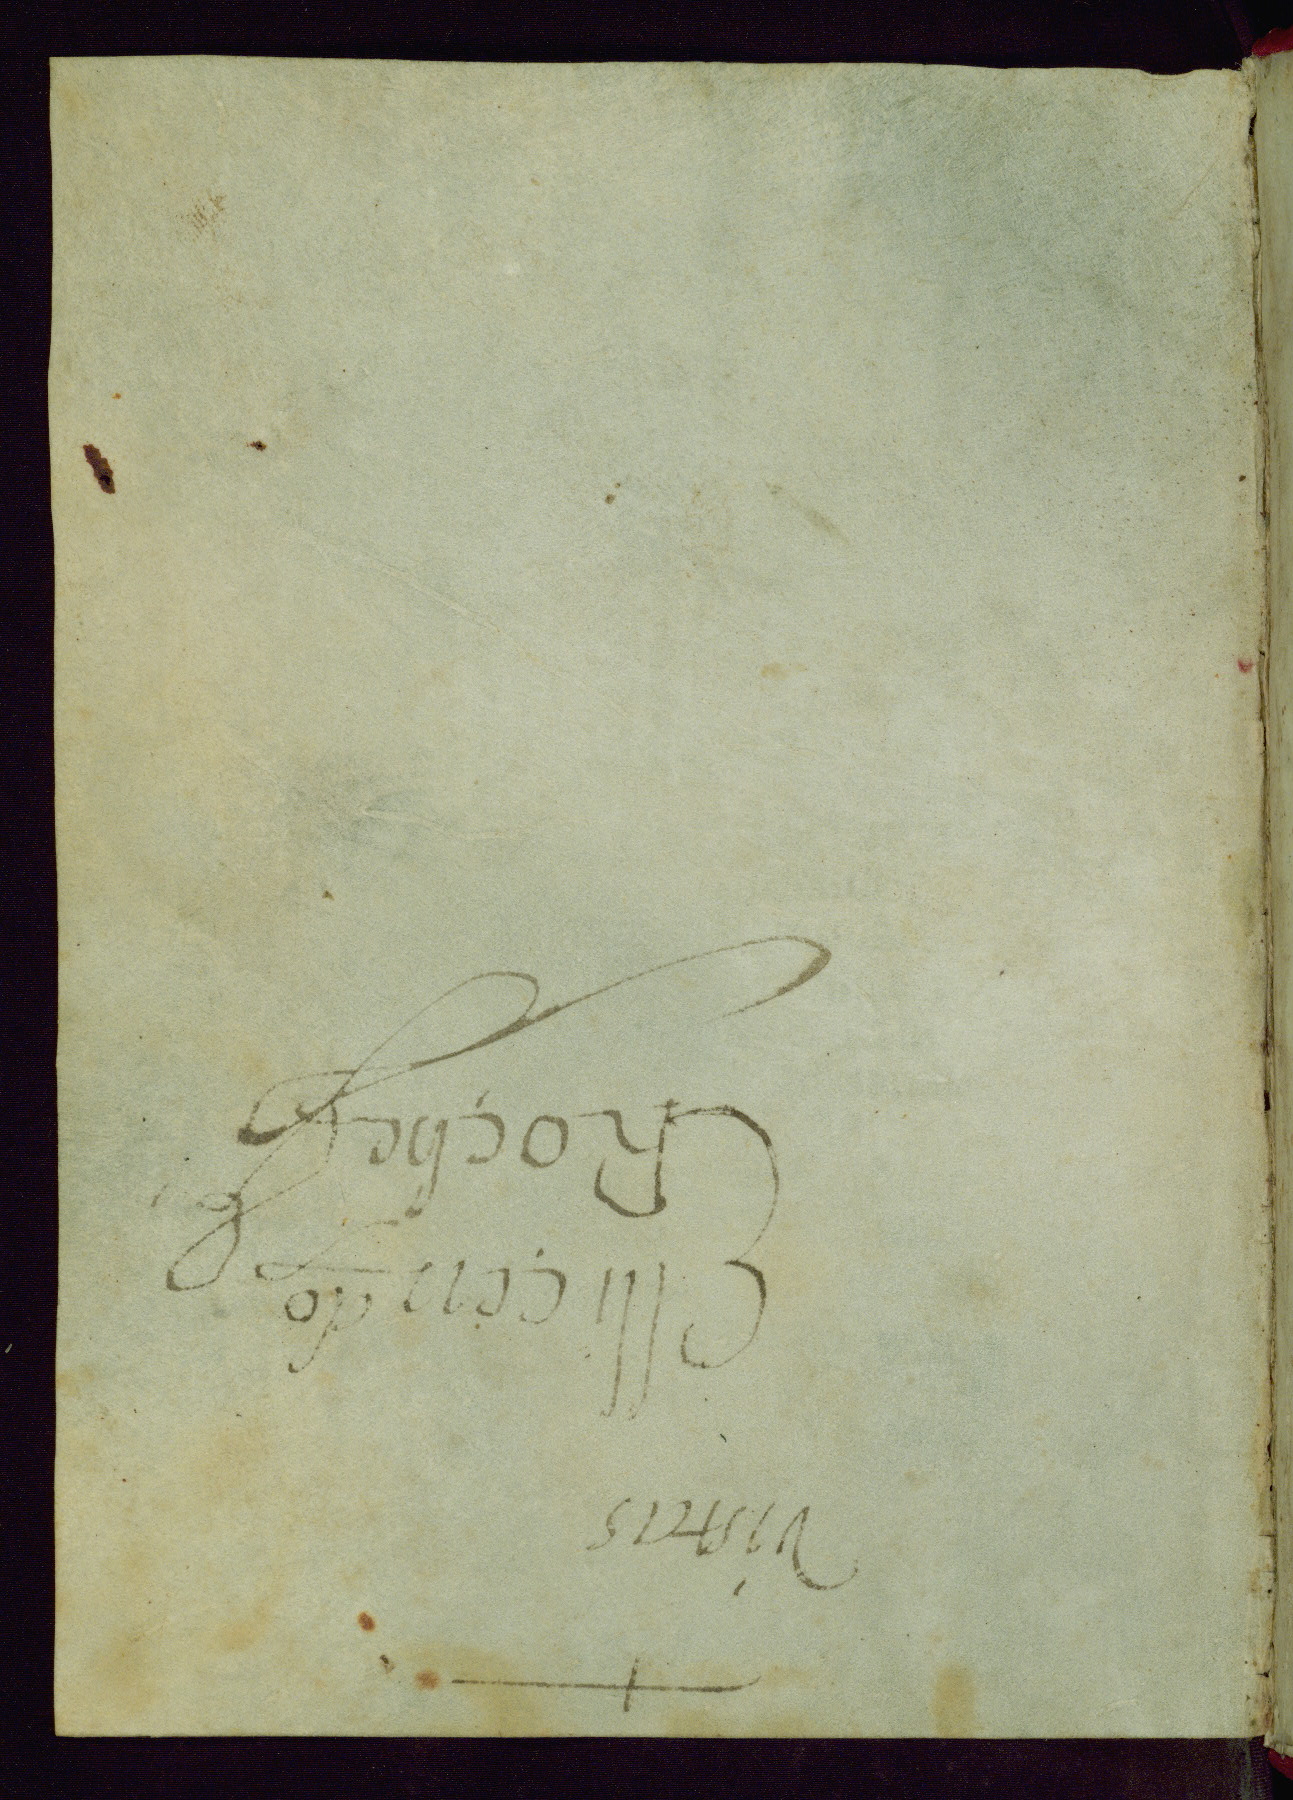 vistas
El licendo
Roche